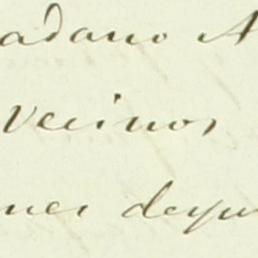 adano A
Vecinos
nes depu